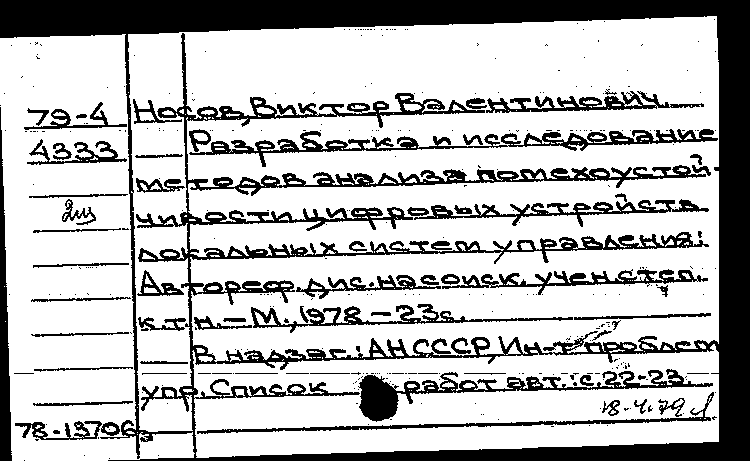 79-4 Носов, Виктор Валентинович.
4333 Разработка и исследование
методов анализа помехоустой-
чивости цифровых устройств
локальных систем управления:
Автореф. дис. на соиск. учен. степ.
к.т.н. – М., 1978 – 23с.
В надзаг.: АН СССР, Ин-т проблем
упр. Список работ авт.: с. 22-23.
18-4.79
78-13706